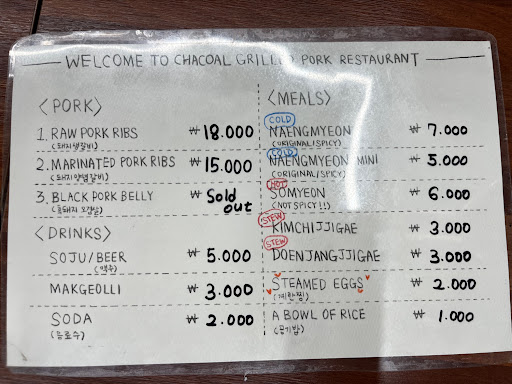 WELCOME TO CHACOAL GRILLED PORK RESTAURANT
<PORK>
1. RAW PORK RIBS ₩18.000
(돼지생갈비)
2. MARINATED PORK RIBS ₩15.000
(돼지양념갈비)
3. BLACK PORK BELLY ₩ Sold out
(흑돼지 오겹살)
<DRINKS>
SOJU/BEER ₩5.000
(맥주)
MAKGEOLLI ₩3.000
SODA ₩2.000
(음료수)
<MEALS>
COLD
NAENGMYEON ₩7.000
(ORIGINAL/SPICY)
COLD
NAENGMYEON MINI ₩5.000
(ORIGINAL/SPICY)
HOT
SOMYEON ₩6.000
(NOT SPICY!!)
STEW
KIMCHI JJIGAE ₩3.000
STEW
DOENJANGJJIGAE ₩3.000
STEAMED EGGS ₩2.000
(계란찜)
A BOWL OF RICE ₩1.000
(공기밥)